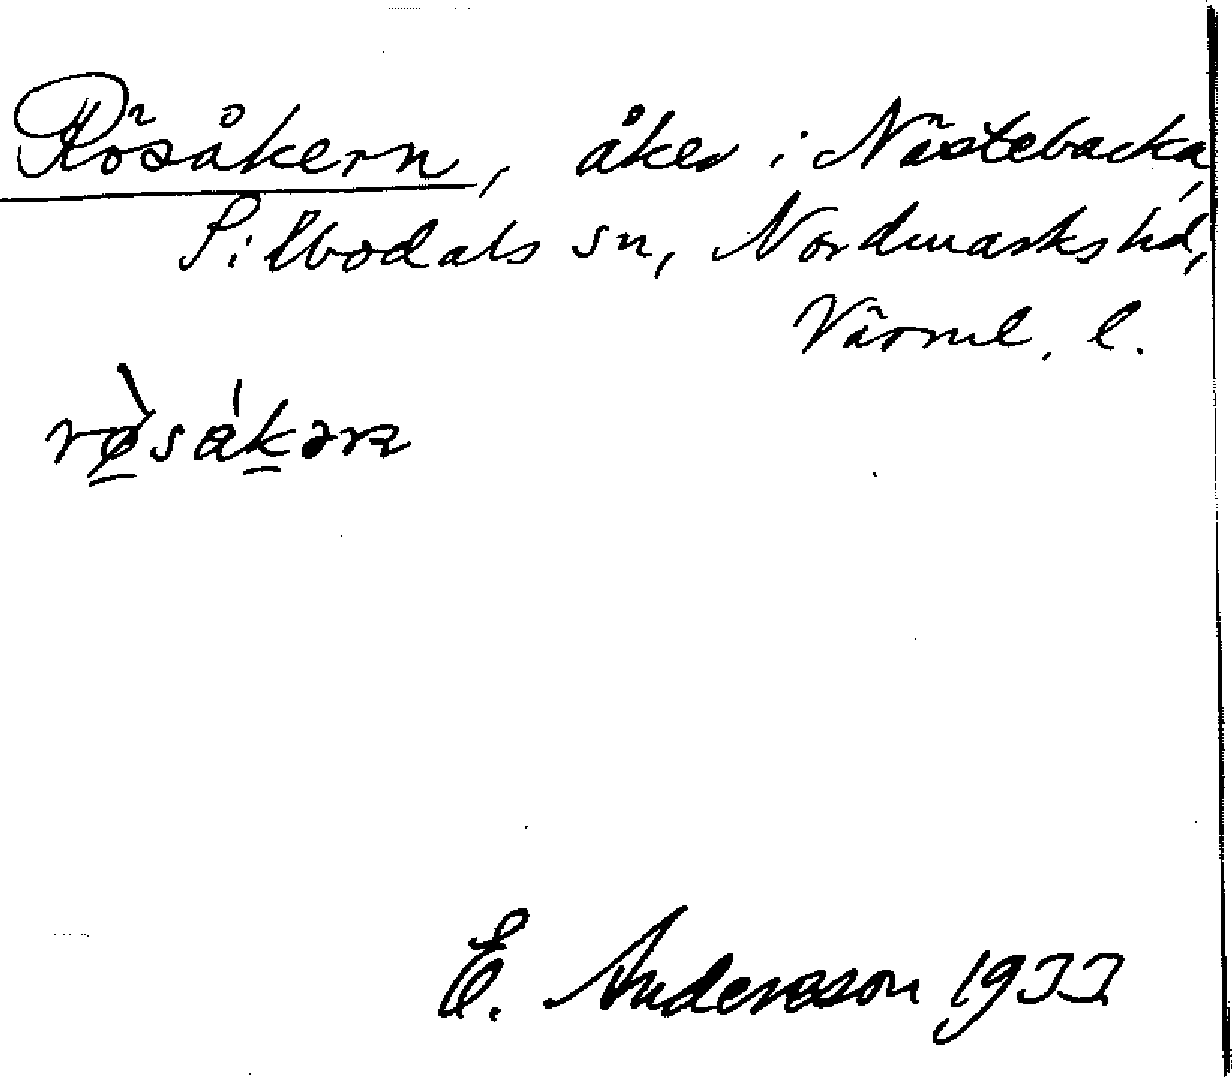 Rösåkern, åker i Nästebacka,
Silbodals sn, Nordmarks hd,
Värml. l.
rø̀såkərn
E. Andersson 1933